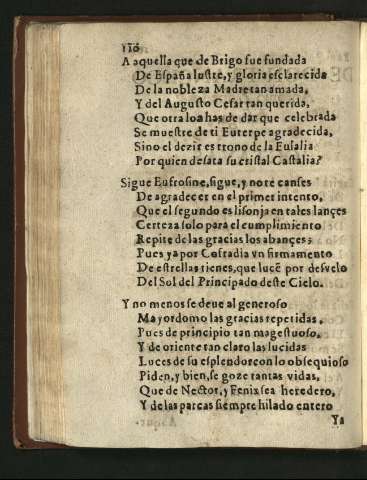 116
A aquella que de Brigo fue fundada
De España lustre, y gloria esclarecida
De la nobleza Madre tan amada,
Y del Augusto Cesar tan querida,
Que otra loa has de dar que celebrada
Se muestre de ti Euterpe agradecida,
Sino el dezir es trono de la Eulalia
Por quien desata su cristal Castalia?
Sigue Eufrosine, sigue, y no te canses
De agradecer en el primer intento,
Que el segundo es lisonja en tales lançes
Certeza solo para el cumplimiento
Repite de las gracias los abançes;
Pues ya por Cofradia vn firmamento
De estrellas tienes, que lucẽ por desvelo
Del Sol del Principado deste Cielo.
Y no menos se deue al generoso
Mayordomo las gracias repetidas,
Pues de principio tan magestuoso,
Y de oriente tan claro las lucidas
Luces de su esplendor con lo obsequioso
Piden, y bien, se goze tantas vidas,
Que de Nestor, y Fenix sea heredero,
Y de las parcas siempre hilado entero
Ya